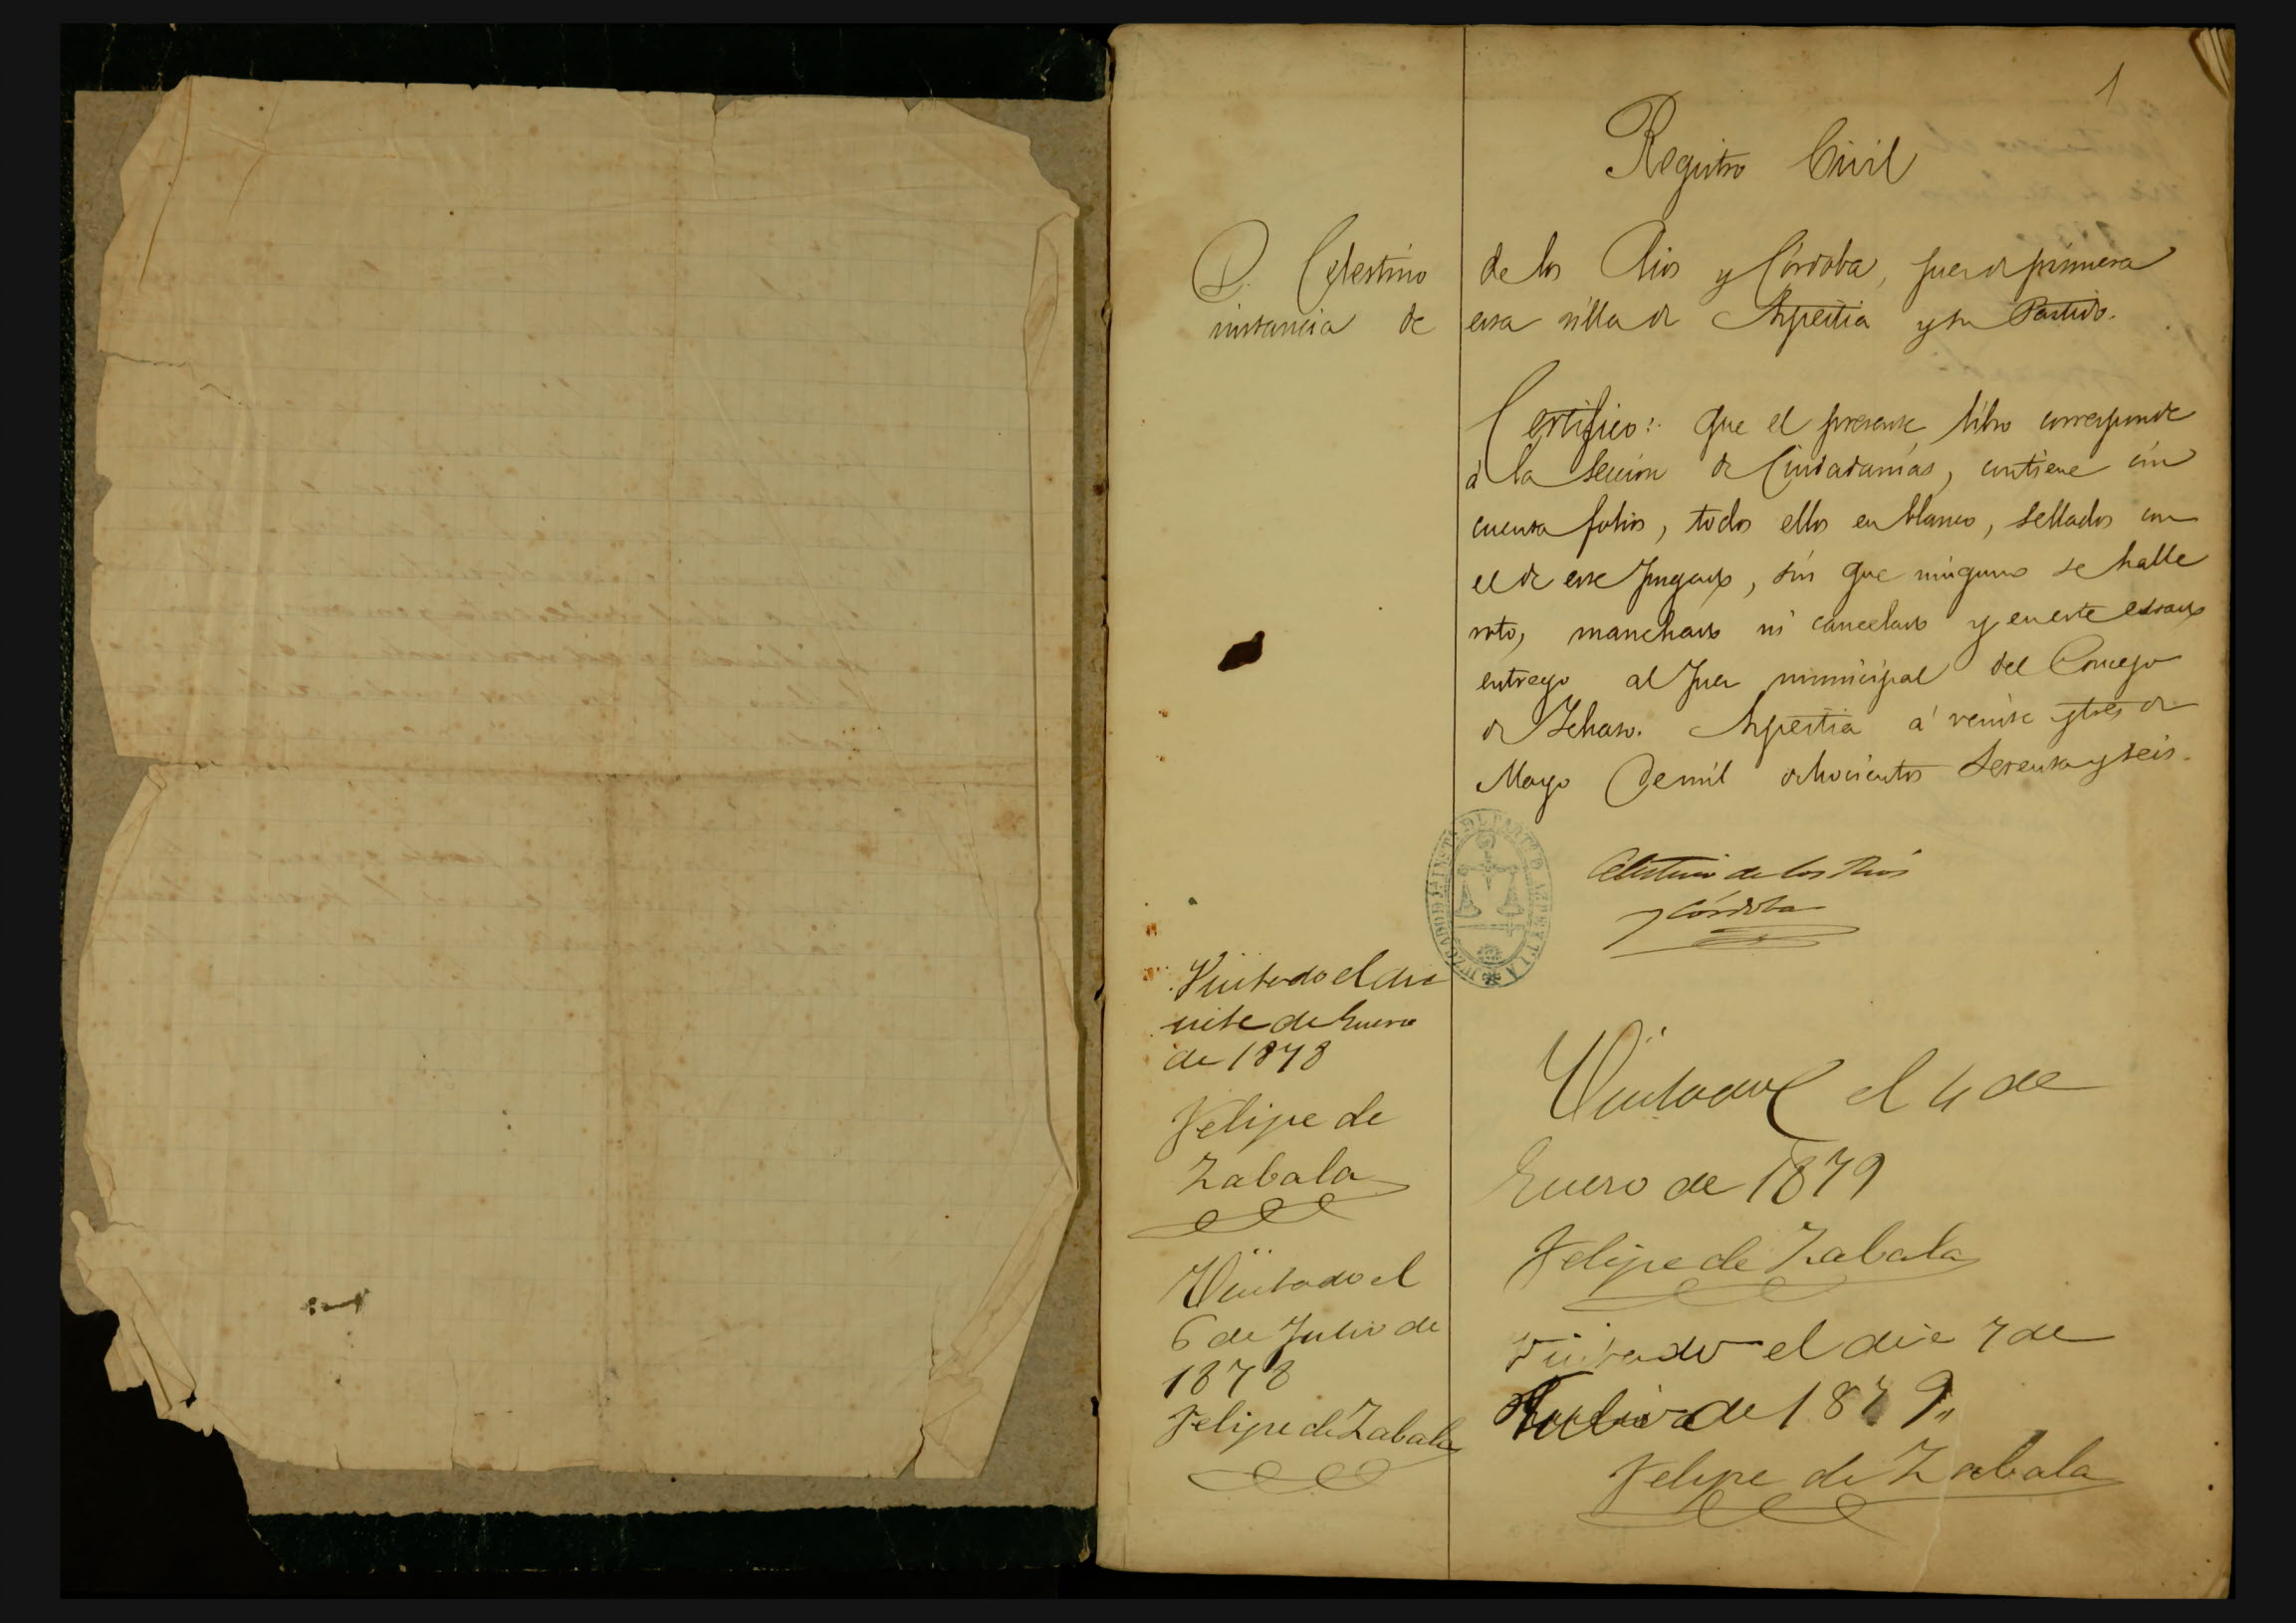 1
Registro Civil
D. Celestino de los Rios y Córdoba, Juez de primera
instancia de esta villa de Azpeitia y su Partido.
Certifico: Que el presente libro corresponde
á la Sección de Ciudadanías, contiene cin
cuenta folios, todos ellos en blanco, sellados con
el de este Juzgado, sin que ninguno se halle
roto, manchado ni cancelado y en este estado
entrego al Juez municipal del Concejo
de Ichaso. Azpeitia á veinte y tres de
Mayo de mil ochocientos setenta y seis.
JUZGADO DE 1ª INSTª DEL PARTIDO AZPEITIA
Celestino de los Rios
y Córdoba
Visitado el dia
siete de Enero
de 1878
Felipe de
Zabala
Visitado el
6 de Julio de
1878
Felipe de Zabala
Visitado el 4 de
Enero de 1879
Felipe de Zabala
Visitado el dia 7 de
Julio de 1879
Felipe de Zabala